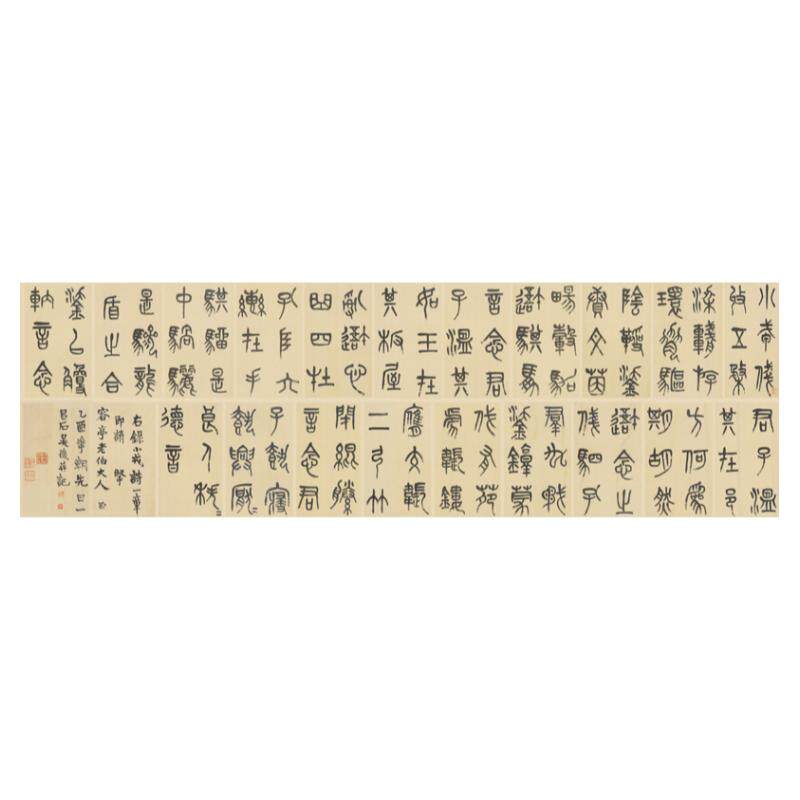 小戎俴
收五楘
梁輈游
環脅驅
陰靷鋈
續文茵
暢轂駕
我騏馵
言念君
子溫其
如玉在
其板屋
亂我心
曲四牡
孔阜六
轡在手
騏駵是
中騧驪
是驂龍
盾之合
鋈以觼
軜言念
君子溫
其在邑
方何為
期胡然
我念之
俴駟孔
群厹矛
鋈錞蒙
伐有苑
虎韔鏤
膺交韔
二弓竹
閉緄縢
言念君
子載寢
載興厭〻
良人秩〻
德音
右錄小戎詩一章
即請
容亭老伯大人
乙酉
昌石吳俊并記